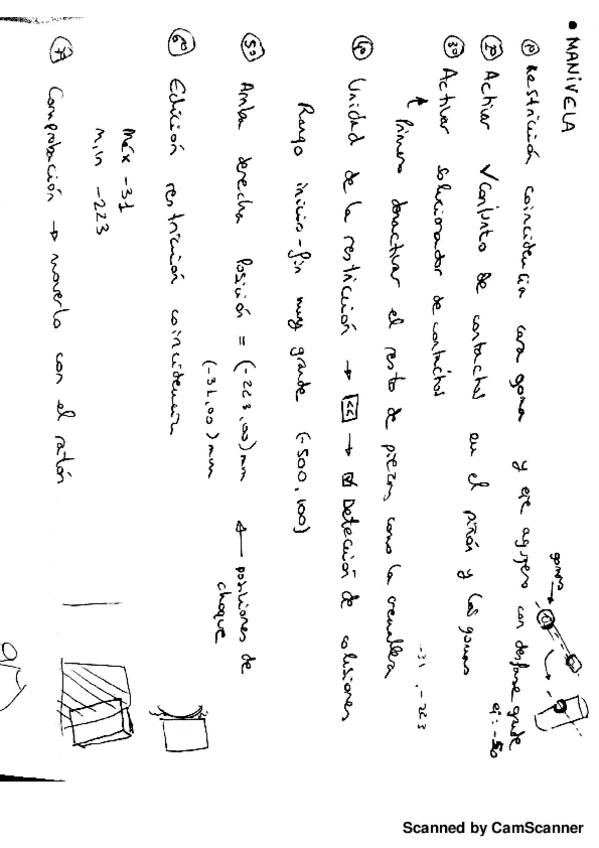 • MANIVELA
1º Restricción coincidencia cara goma y eje agujero con desfase grande
ej: -50
gomas
2º Activar √ conjunto de contactos en el piñón y las gomas
3º Activar solucionador de contactos
↑ Primero desactivar el resto de piezas, como la cremallera
-31, -223
4º Unidad de la restricción → << → ☑ Detección de colisiones
Rango inicio-fin muy grande (-500, 100)
5º Arriba derecha Posición = (-223,00) mm ← posiciones de
(-31,00) mm choque
6º Edición restricción coincidencia
máx -31
min -223
7 Comprobación → moverlo con el ratón
Scanned by CamScanner